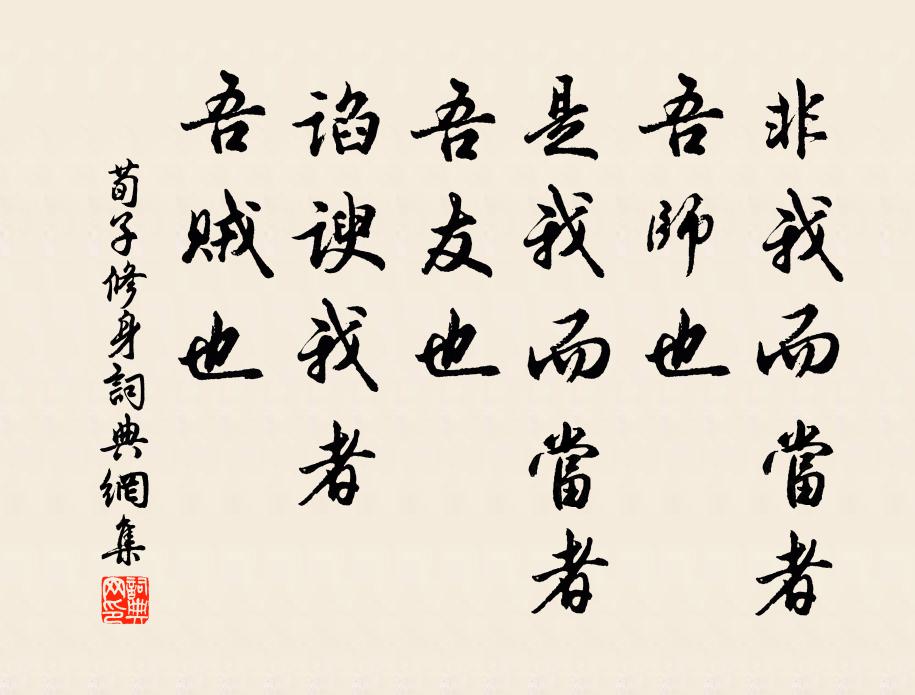 非我而當者
吾師也
是我而當者
吾友也
谄諛我者
吾賊也
荀子修身詞典網集
詞典网印